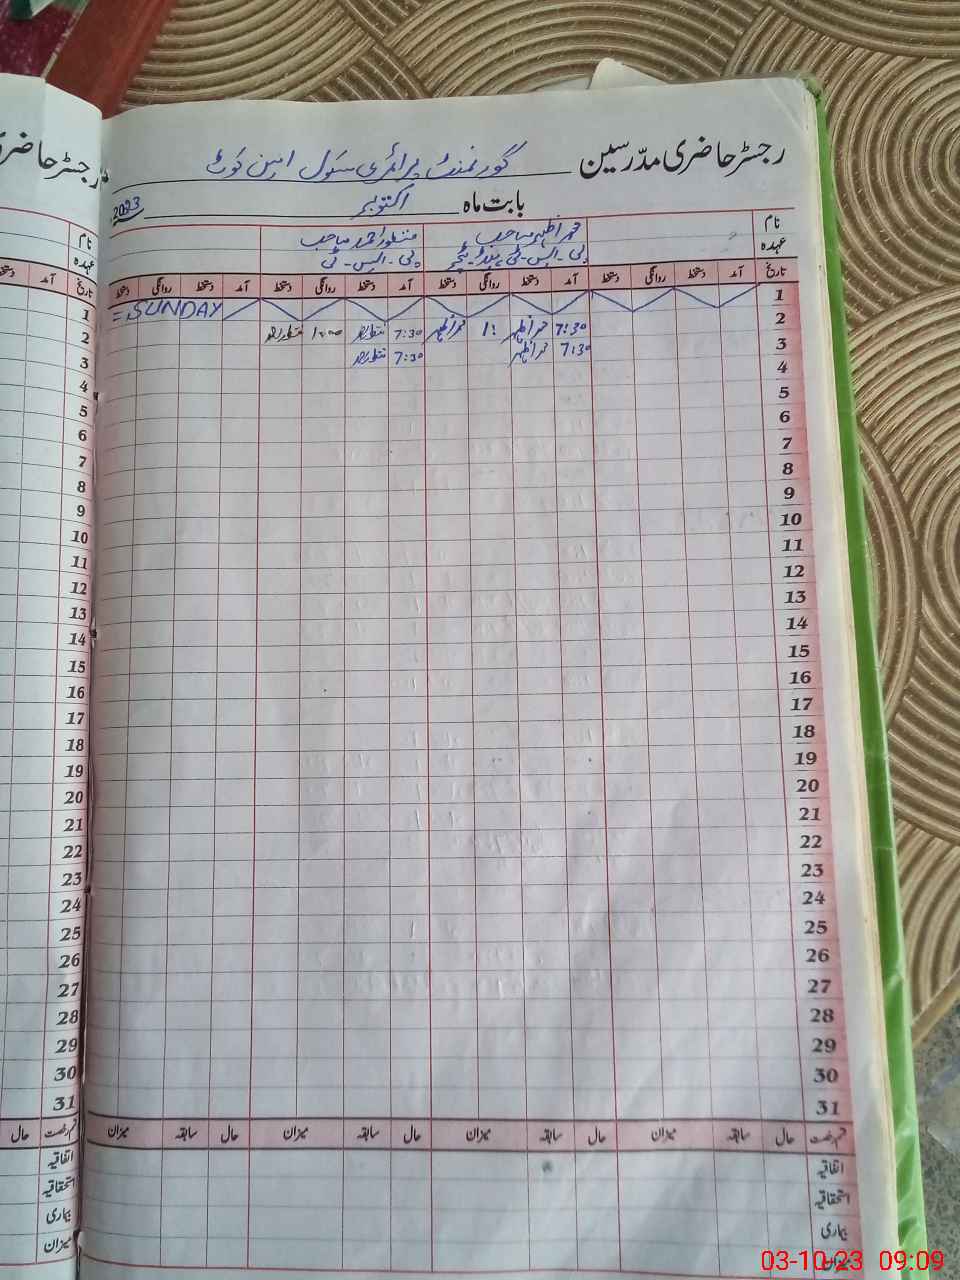 رجسٹر حاضری مدرّسین گورنمنٹ پرائمری سکول امین کوٹ
بابت ماہ اکتوبر 2023
نام محمد اظہر صاحب منظور احمد صاحب
عہدہ پی-ایس-ٹی، ہیڈ-ٹیچر پی-ایس-ٹی
تاریخ آمد دستخط روانگی دستخط آمد دستخط روانگی دستخط آمد دستخط روانگی دستخط آمد دستخط روانگی دستخط
1 = SUNDAY
2 7:30 محمد اظہر 1: محمد اظہر 7:30 منظور احمد 1:00 منظور احمد
3 7:30 محمد اظہر 7:30 منظور احمد
4
5
6
7
8
9
10
11
12
13
14
15
16
17
18
19
20
21
22
23
24
25
26
27
28
29
30
31
قسم رخصت حال سابقہ میزان حال سابقہ میزان حال سابقہ میزان حال سابقہ میزان
اتفاقیہ
استحقاقیہ
بیماری
میزان
رجسٹر حاضری
نام
عہدہ
تاریخ آمد دستخط
1
2
3
4
5
6
7
8
9
10
11
12
13
14
15
16
17
18
19
20
21
22
23
24
25
26
27
28
29
30
31
قسم رخصت حال
اتفاقیہ
استحقاقیہ
بیماری
میزان
03-10-23 09:09